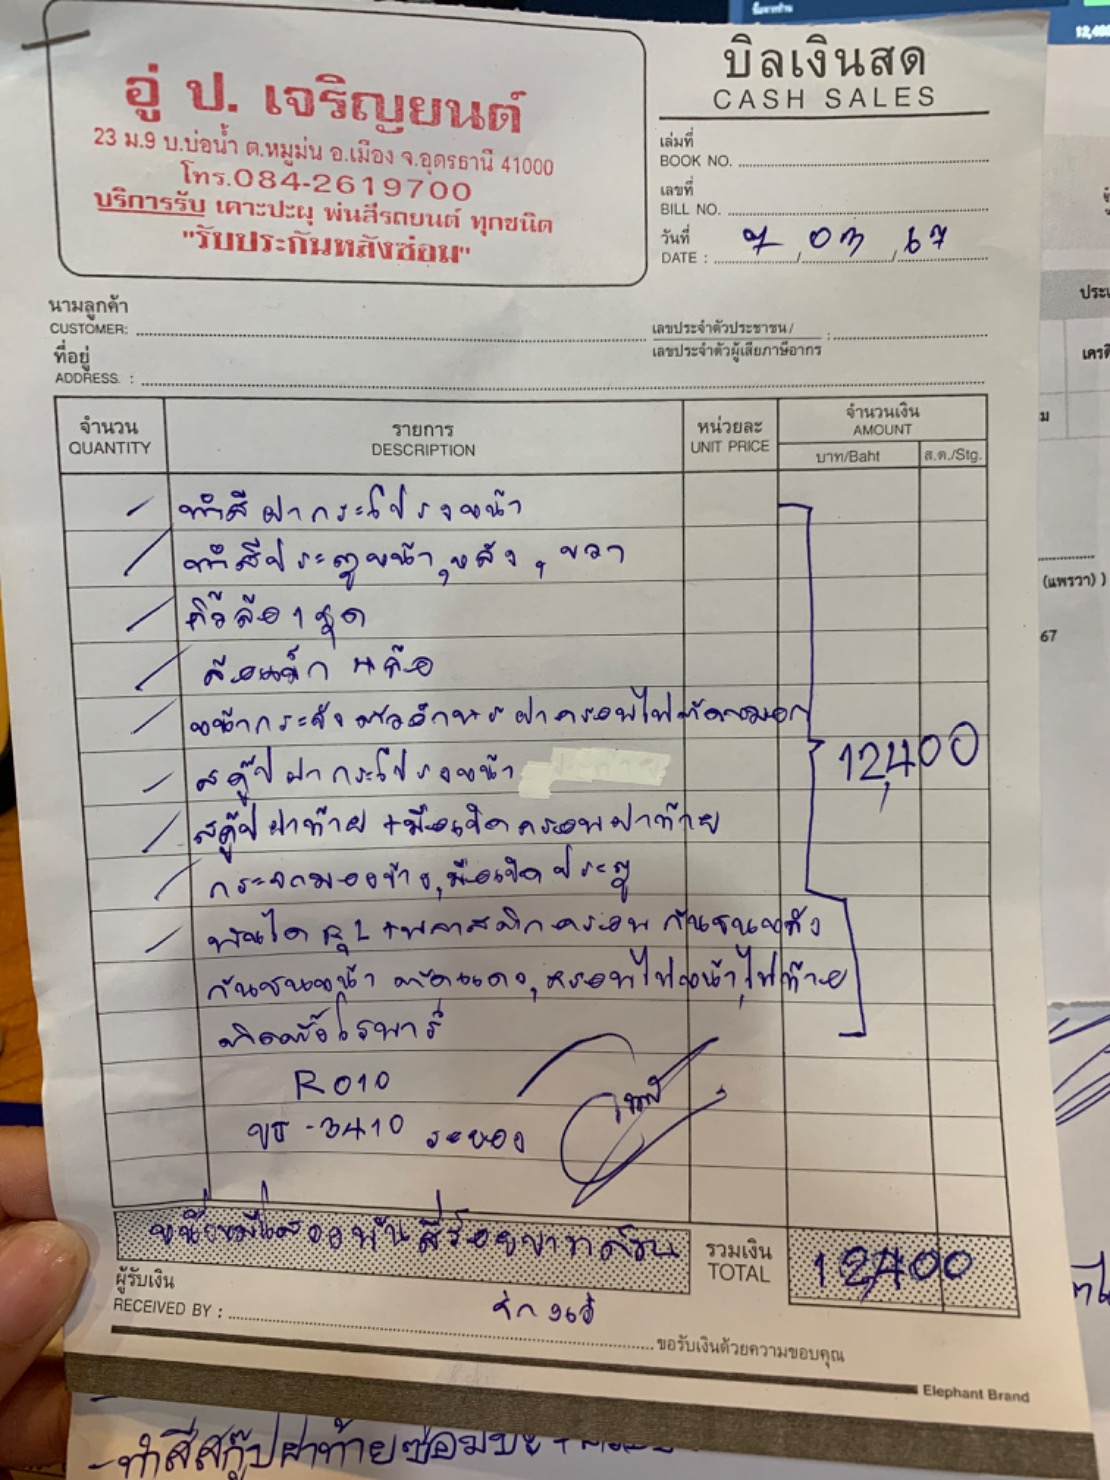 ซื้อจากร้าน
12,400
อู่ ป. เจริญยนต์
23 ม.9 บ.บ่อน้ำ ต.หมูม่น อ.เมือง จ.อุดรธานี 41000
โทร.084-2619700
บริการรับ เคาะปะผุ พ่นสีรถยนต์ ทุกชนิด
"รับประกันหลังซ่อม"
บิลเงินสด
CASH SALES
เล่มที่
BOOK NO.
เลขที่
BILL NO.
วันที่
DATE : 7 / 03 / 67
นามลูกค้า
CUSTOMER:
เลขประจำตัวประชาชน /
เลขประจำตัวผู้เสียภาษีอากร :
ที่อยู่
ADDRESS :
จำนวน
QUANTITY
รายการ
DESCRIPTION
หน่วยละ
UNIT PRICE
จำนวนเงิน
AMOUNT
บาท/Baht
ส.ต./Stg.
/ ทำสีฝากระโปรงหน้า
/ ทำสีประตูหน้า,หลัง, ขวา
/ คิ้วล้อ 1 ชุด
/
/ หน้ากระจัง ตัวอักษร ฝาครอบไฟตัดหมอก
/ สกู๊ปฝากระโปรงหน้า
/ สกู๊ปฝาท้าย + มือเปิดครอบฝาท้าย
/ กระจกมองข้าง, มือเปิดประตู
/ บันได R,L + พลาสติกครอบ กันชนหลัง
กันชนหน้า ตัดแดง, ครอบไฟหน้า,ไฟท้าย
12,400
R010
ขธ - 3410 ระยอง
หนึ่งหมื่นสองพันสี่ร้อยบาทถ้วน
รวมเงิน
TOTAL
12,400
ผู้รับเงิน
RECEIVED BY :
ขอรับเงินด้วยความขอบคุณ
Elephant Brand
(แพรวา) )
67
- ทำสีสกู๊ปฝาท้ายซ่อม